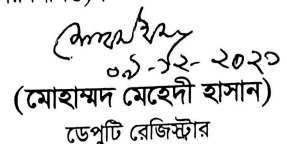 ০৯-১২-২০২০
(মোহাম্মদ মেহেদী হাসান)
ডেপুটি রেজিস্ট্রার